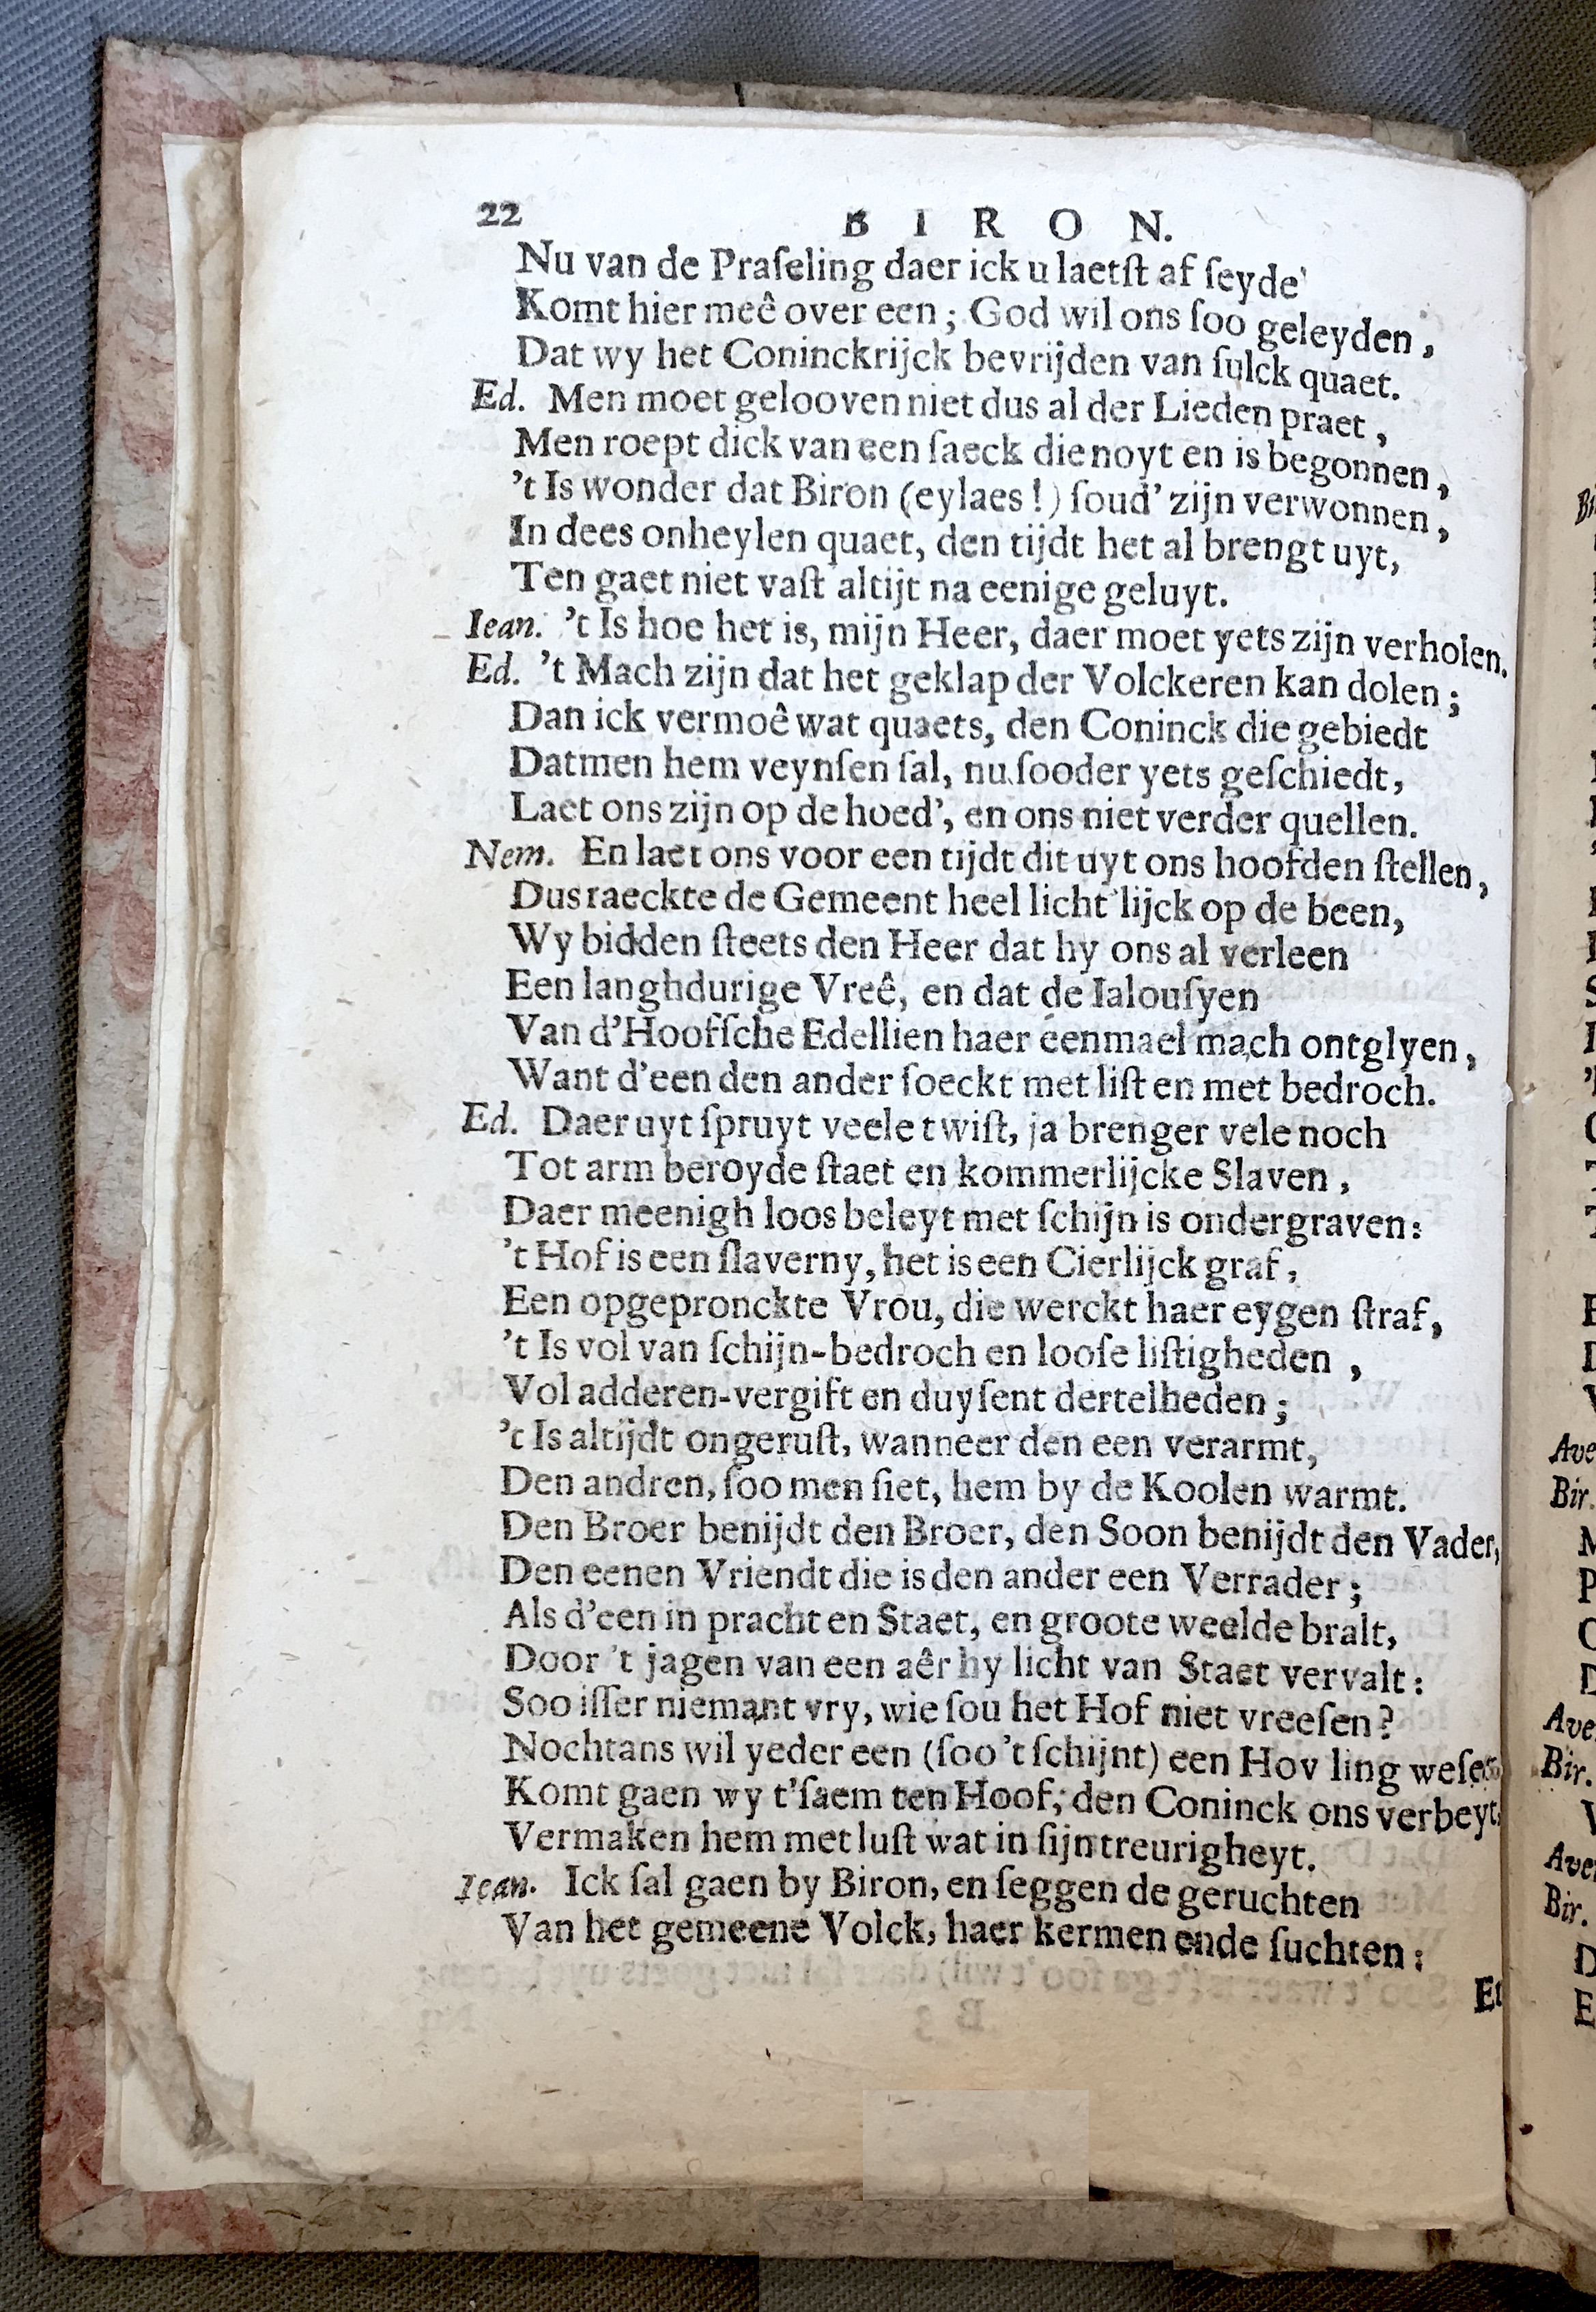 22 BIRON.
Nu van de Praſeling daer ick u laetſt af ſeyde
Komt hier meê over een; God wil ons ſoo geleyden,
Dat wy het Coninckrijck bevrijden van ſulck quaet.
Ed. Men moet gelooven niet dus al der Lieden praet,
Men roept dick van een ſaeck die noyt en is begonnen,
't Is wonder dat Biron (eylaes!) ſoud' zijn verwonnen,
In dees onheylen quaet, den tijdt het al brengt uyt,
Ten gaet niet vaſt altijt na eenige geluyt.
Iean. 't Is hoe het is, mijn Heer, daer moet yets zijn verholen.
Ed. 't Mach zijn dat het geklap der Volckeren kan dolen;
Dan ick vermoê wat quaets, den Coninck die gebiedt
Datmen hem veynſen ſal, nu ſooder yets geſchiedt,
Laet ons zijn op de hoed', en ons niet verder quellen.
Nem. En laet ons voor een tijdt dit uyt ons hoofden ſtellen,
Dus raeckte de Gemeent heel licht'lijck op de been,
Wy bidden ſteets den Heer dat hy ons al verleen
Een langhdurige Vreê, en dat de Ialouſyen
Van d'Hoofſche Edellien haer eenmael mach ontglyen,
Want d'een den ander ſoeckt met liſt en met bedroch.
Ed. Daer uyt ſpruyt veele twiſt, ja brenger vele noch
Tot arm beroyde ſtaet en kommerlijcke Slaven,
Daer meenigh loos beleyt met ſchijn is ondergraven:
't Hof is een ſlaverny, het is een Cierlijck graf,
Een opgepronckte Vrou, die werckt haer eygen ſtraf,
't Is vol van ſchijn-bedroch en looſe liſtigheden,
Vol adderen-vergift en duyſent dertelheden;
't Is altijdt ongeruſt, wanneer den een verarmt,
Den andren, ſoo men ſiet, hem by de Koolen warmt.
Den Broer benijdt den Broer, den Soon benijdt den Vader,
Den eenen Vriendt die is den ander een Verrader;
Als d'een in pracht en Staet, en groote weelde bralt,
Door 't jagen van een aêr hy licht van Staet vervalt:
Soo iſſer niemant vry, wie ſou het Hof niet vreeſen?
Nochtans wil yeder een (ſoo 't ſchijnt) een Hov ling weſen
Komt gaen wy t'ſaem ten Hoof, den Coninck ons verbeyt,
Vermaken hem met luſt wat in ſijn treurigheyt.
Iean. Ick ſal gaen by Biron, en ſeggen de geruchten
Van het gemeene Volck, haer kermen ende ſuchten: